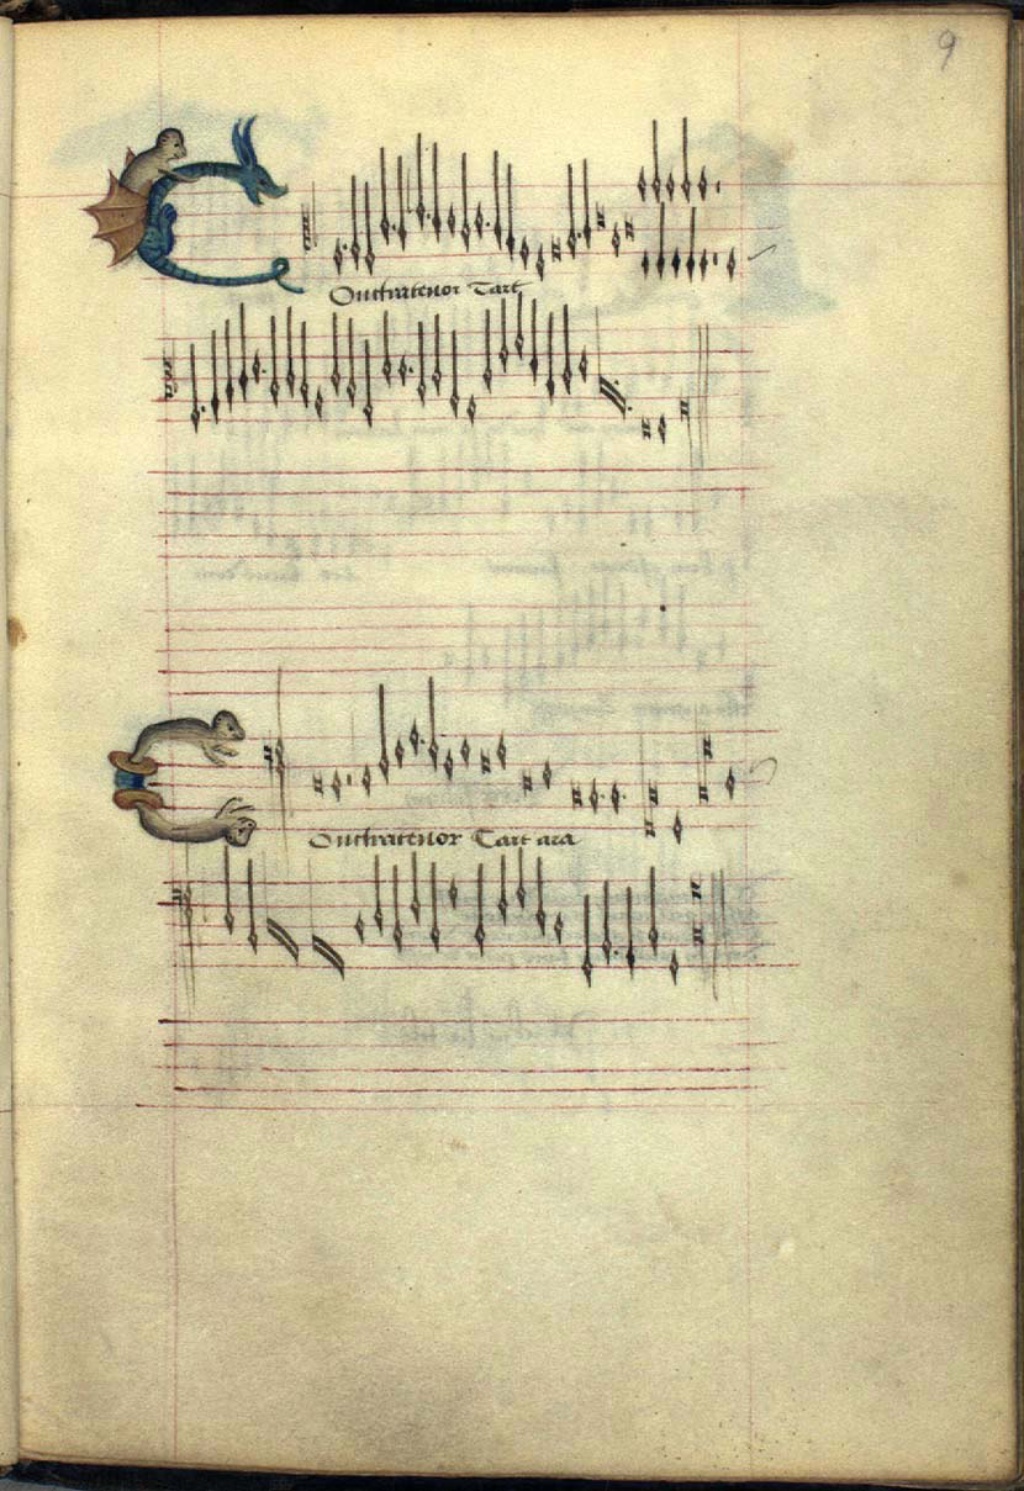 9
Contratenor Tart
Contratenor Tart ara